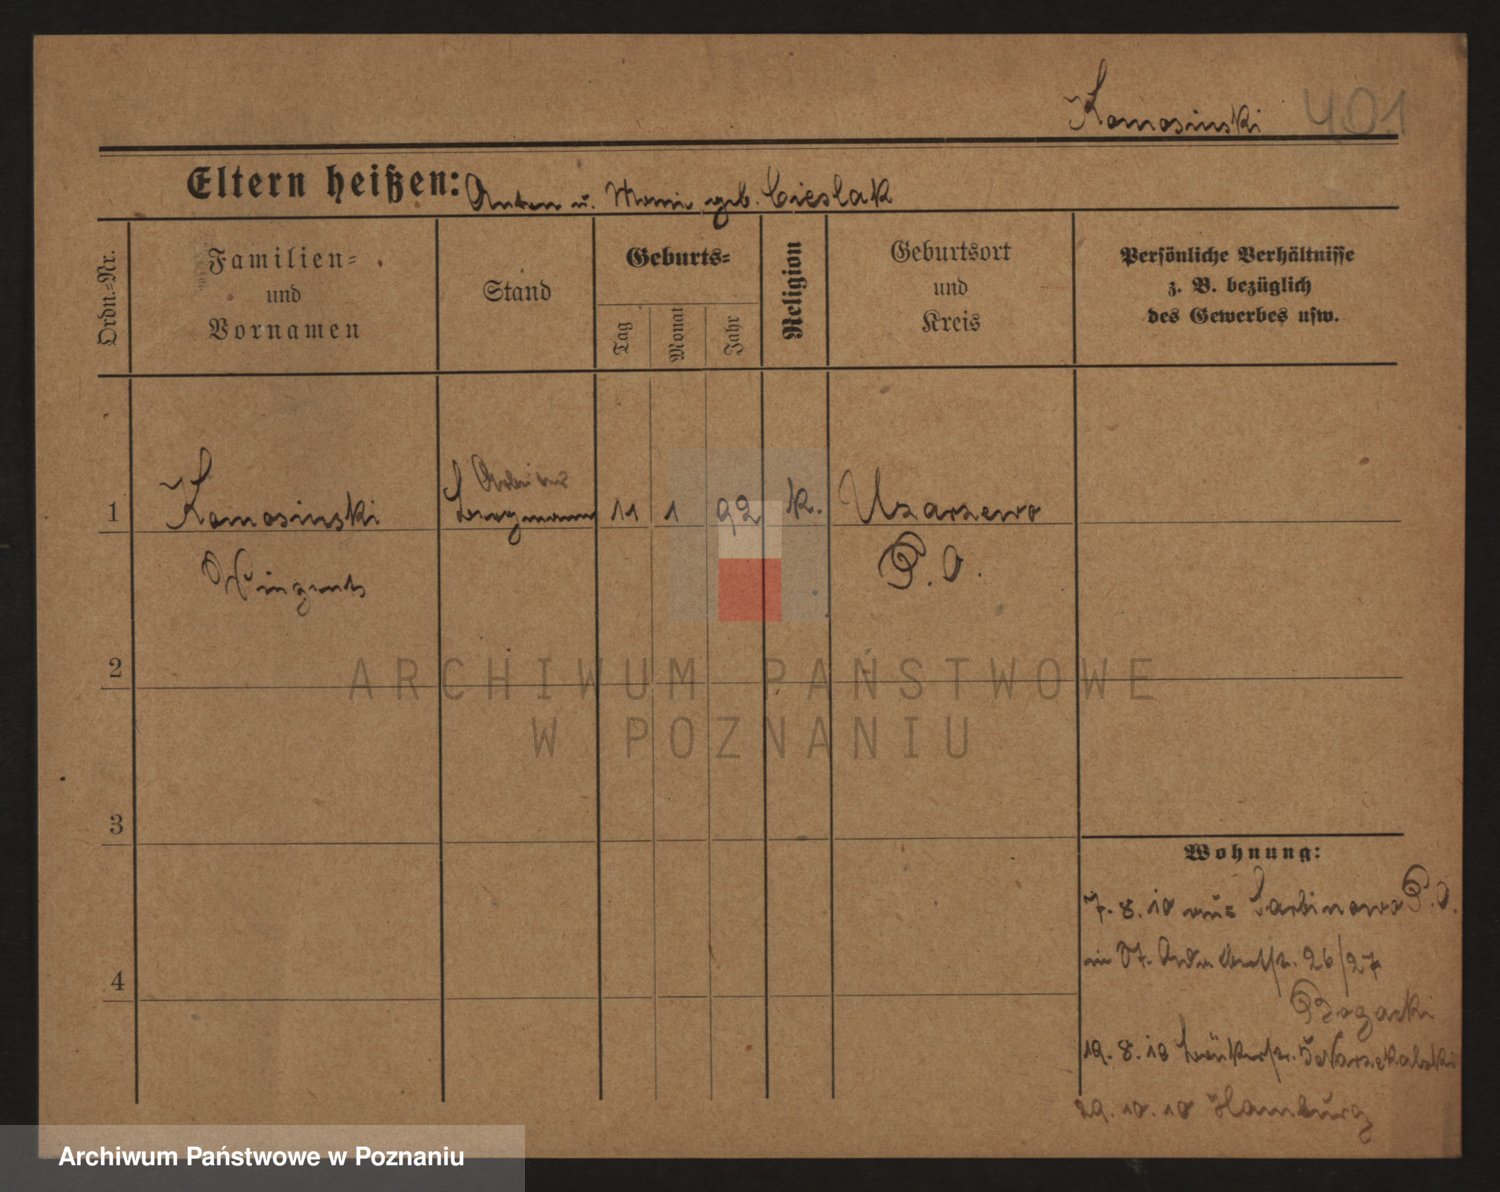 Komosinski 401
Eltern heißen: Anton u. Marie geb. Cieslak
Ordn.-Nr.
Familien-
und
Vornamen
Stand
Geburts-
Tag
Monat
Jahr
Religion
Geburtsort
und
Kreis
Persönliche Verhältnisse
z. B. bezüglich
des Gewerbes usw.
Arbeiter
1 Komosinski 11 1 92 k. Uzarzewo
Vinzent P. O.
2
ARCHIWUM PAŃSTWOWE
W POZNANIU
3
Wohnung:
7. 8. 10 aus Sarbinowo P. O.
4
in 26/27
Bogacki
19. 8. 10 5
29. 10. 10 Hamburg
Archiwum Państwowe w Poznaniu